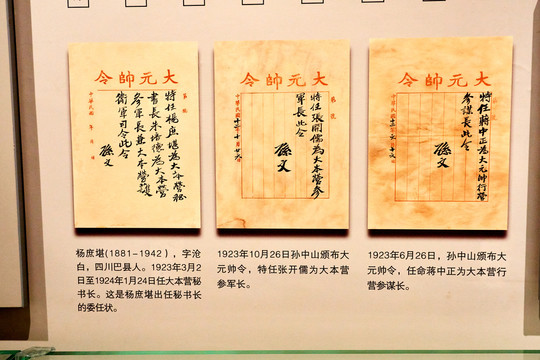 大元帥令
特任楊庶堪為大本營秘
書長朱培德為大本營
參軍長兼大本營
衛軍司令此令
孫文
中華民國 年 月 日
大元帥令
特任張開儒為大本營參
軍長此令
孫文
中華民國
大元帥令
特任蔣中正為大元帥行營
參謀長此令
孫文
中華民國
杨庶堪(1881-1942)，字沧
白，四川巴县人。1923年3月2
日至1924年1月24日任大本营秘
书长。这是杨庶堪出任秘书长
的委任状。
1923年10月26日孙中山颁布大
元帅令，特任张开儒为大本营
参军长。
1923年6月26日，孙中山颁布大
元帅令，任命蒋中正为大本营行
营参谋长。